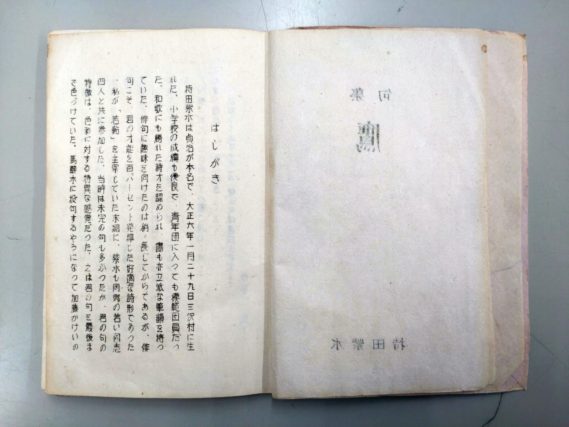 句集
鷹
持田紫水
はしがき
持田紫水は尚治が本名で、大正六年一月二十九日三沢村に生
れた。小学校の成績も優良で、青年団に入っても模範団員だっ
た。和歌にも勝れた詩才を認められ、書も亦立派な筆蹟を持っ
ていた。俳句に趣味を向けたのは稍、長じてからであるが、俳
句こそ、君の才能を百パーセント発揮した好適な詩形であった
私が「」を主宰していた末期に、紫水も同郷の若い同志
四人と共に参加した。当時は未完の句も多かつたが、君の句の
特徴は、色彩に対する特異な感覚だった。之は君の句を最後ま
で色づけていた。馬酔木に投句するやうになって加藤かけいの